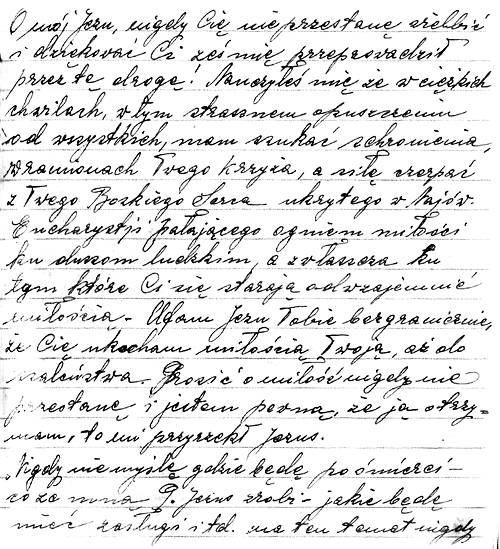 O mój Jezu, nigdy Cię nie przestanę wielbić
i dziękować Ci żeś mię przeprowadził
przez tę drogę! Nauczyłeś mię że w ciężkich
chwilach, w tym strasznem opuszczeniu
od wszystkich, mam szukać schronienia,
w ramionach Twego Krzyża, a siłę czerpać
z Twego Boskiego Serca ukrytego w Najśw.
Eucharystji pałającego ogniem miłości
ku duszom ludzkim, a zwłaszcza ku
tym które Ci się starają odwzajemnić
miłością. Ufam Jezu Tobie bezgranicznie,
że Cię ukocham miłością Twoją, aż do
szaleństwa. Prosić o miłość nigdy nie
przestanę i jestem pewną, że ją otrzy=
mam, to mi przyrzekł Jezus.
"Nigdy nie myślę gdzie będę po śmierci –
co ze mną P. Jezus zrobi – jakie będę
mieć zasługi itd. na ten temat nigdy